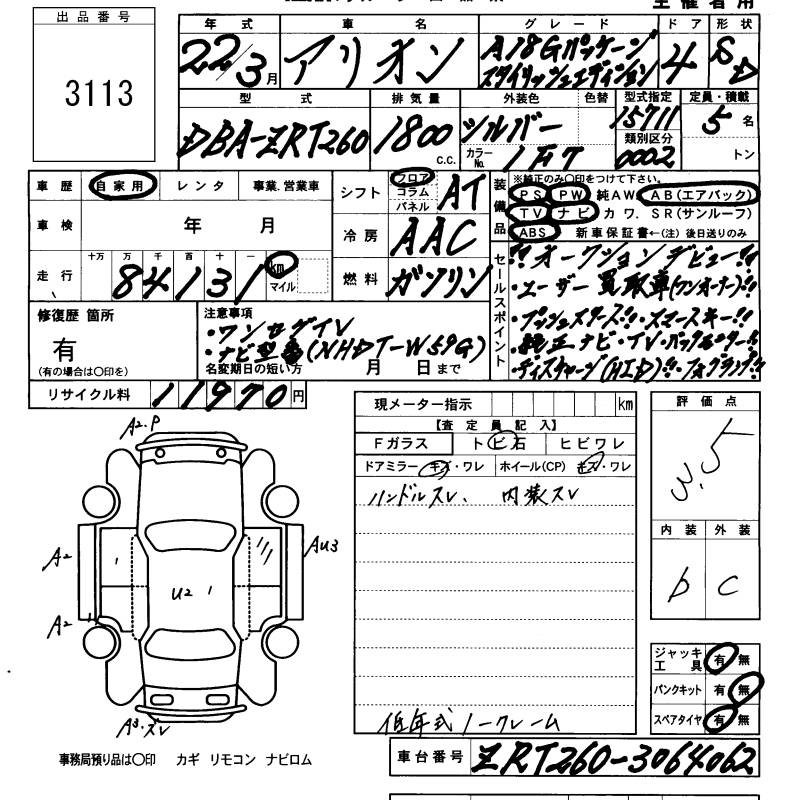 主催者用
出品番号
3113
年式 車名 グレード ドア 形状
22/3月 アリオン A18Gパッケージ スタイリッシュエディション 4 SD
型式 排気量 外装色 色替 型式指定 定員・積載
DBA-ZRT260 1800 C.C. シルバー 15711 5名
カラーNo. 1F7 類別区分 0002 トン
車歴 自家用 レンタ 事業.営業車
車検 年 月
走行 十万 万 千 百 十 一 km マイル
84131
シフト フロア コラム パネル AT
冷房 AAC
燃料 ガソリン
装備品
※純正のみ〇印をつけて下さい。
PS PW 純AW AB(エアバック)
TV ナビ カワ. SR(サンルーフ)
ABS 新車保証書←(注)後日送りのみ
修復歴 箇所
有
(有の場合は〇印を)
注意事項
・ワンセグTV
・ナビ型番(NHDT-W59G)
名変期日の短い方 月 日まで
セールスポイント
!!オークションデビュー!!
・ユーザー買取車(ワンオーナー)!!
・プッシュスタート!!・スマートキー!!
・純正ナビ・TV・バックモニター!!
・ディスチャージ(HID)!!・フォグランプ!!
リサイクル料 11970円
現メーター指示 km
【査定員記入】
Fガラス トビ石 ヒビワレ
ドアミラー キズ・ワレ ホイール(CP) キズ・ワレ
ハンドルスレ、 内装スレ
低年式ノークレーム
評価点
3.5
内装 外装
D C
ジャッキ工具 有 無
パンクキット 有 無
スペアタイヤ 有 無
A2.P
A2
AU3
U2
A2
A3.ズレ
事務局預り品は〇印 カギ リモコン ナビロム
車台番号 ZRT260-3064062